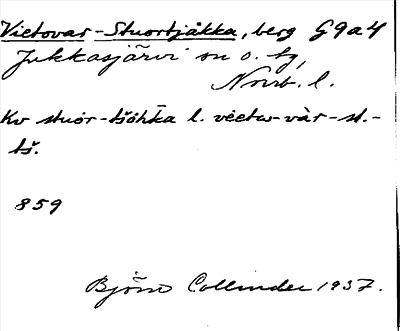 Vietovar-Stuortjåkka, berg G9a4
Jukkasjärvi sn o. tg,
Norrb. l.
Kv stuor-tšohka l. vietω-vàr-st.-
tš.
859
Björn Collinder 1937.